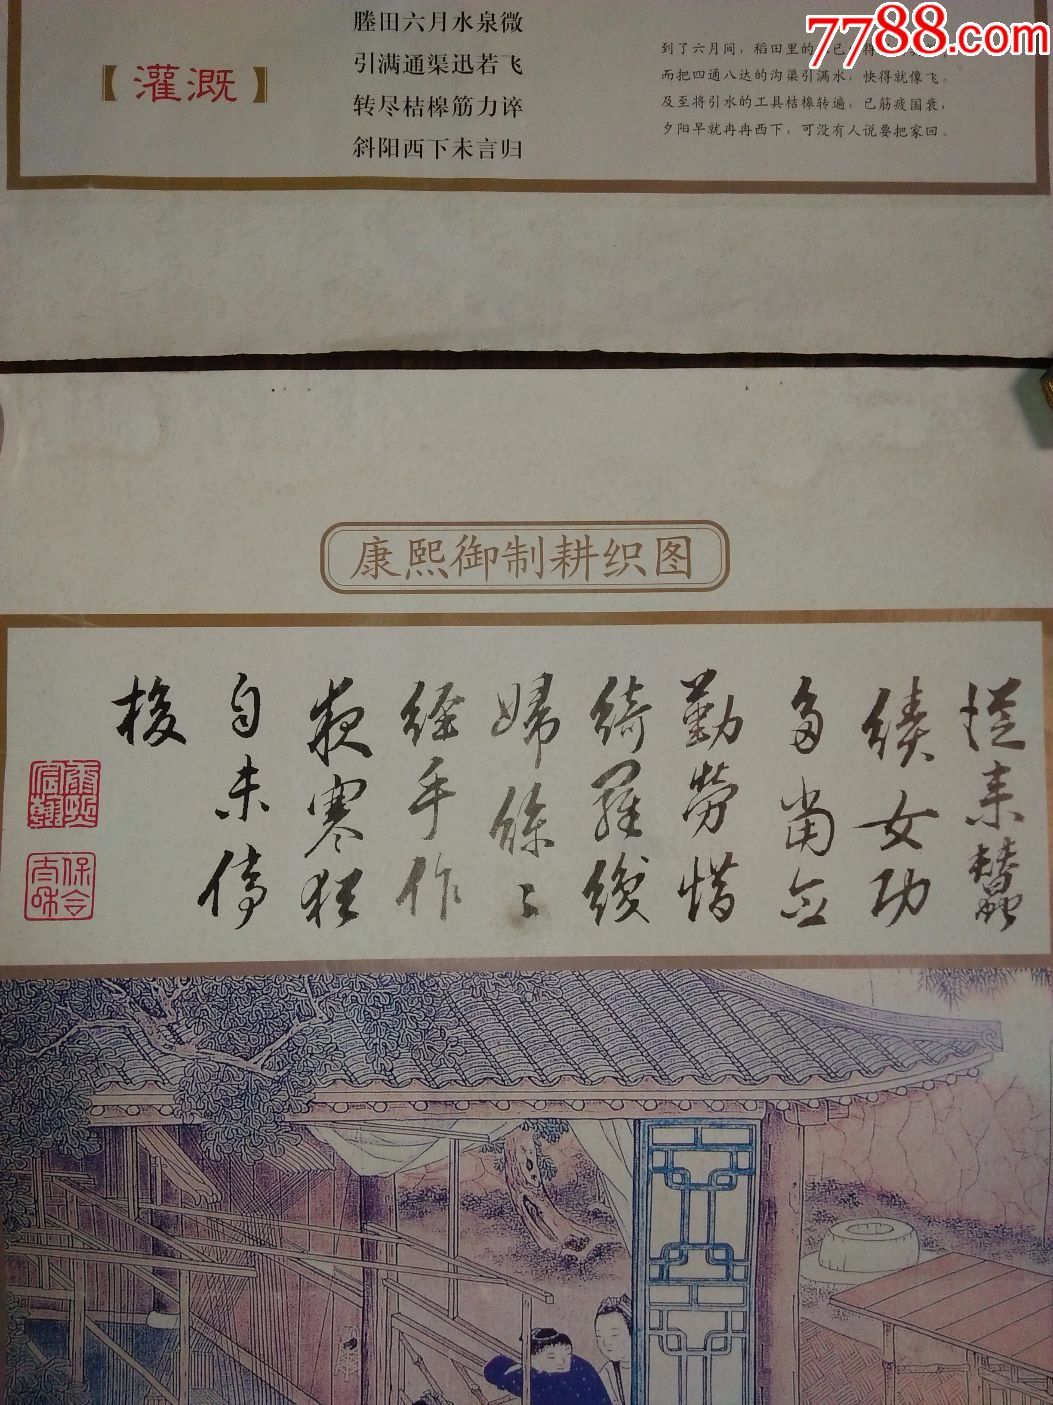 7788.com
塍田六月水泉微
引满通渠迅若飞
转尽桔槔筋力谇
斜阳西下未言归
【灌溉】
到了六月间，稻田里的
而把四通八达的沟渠引满水，快得就像飞。
及至将引水的工具桔槔转遍，已筋疲国衰，
夕阳早就冉冉西下，可没有人说要把家回。
康熙御制耕织图
從来蠶
績女功
多當念
勤勞惜
綺羅織
婦絲〻
經手作
夜寒猶
自未停
梭
康熙宸翰
保合太和